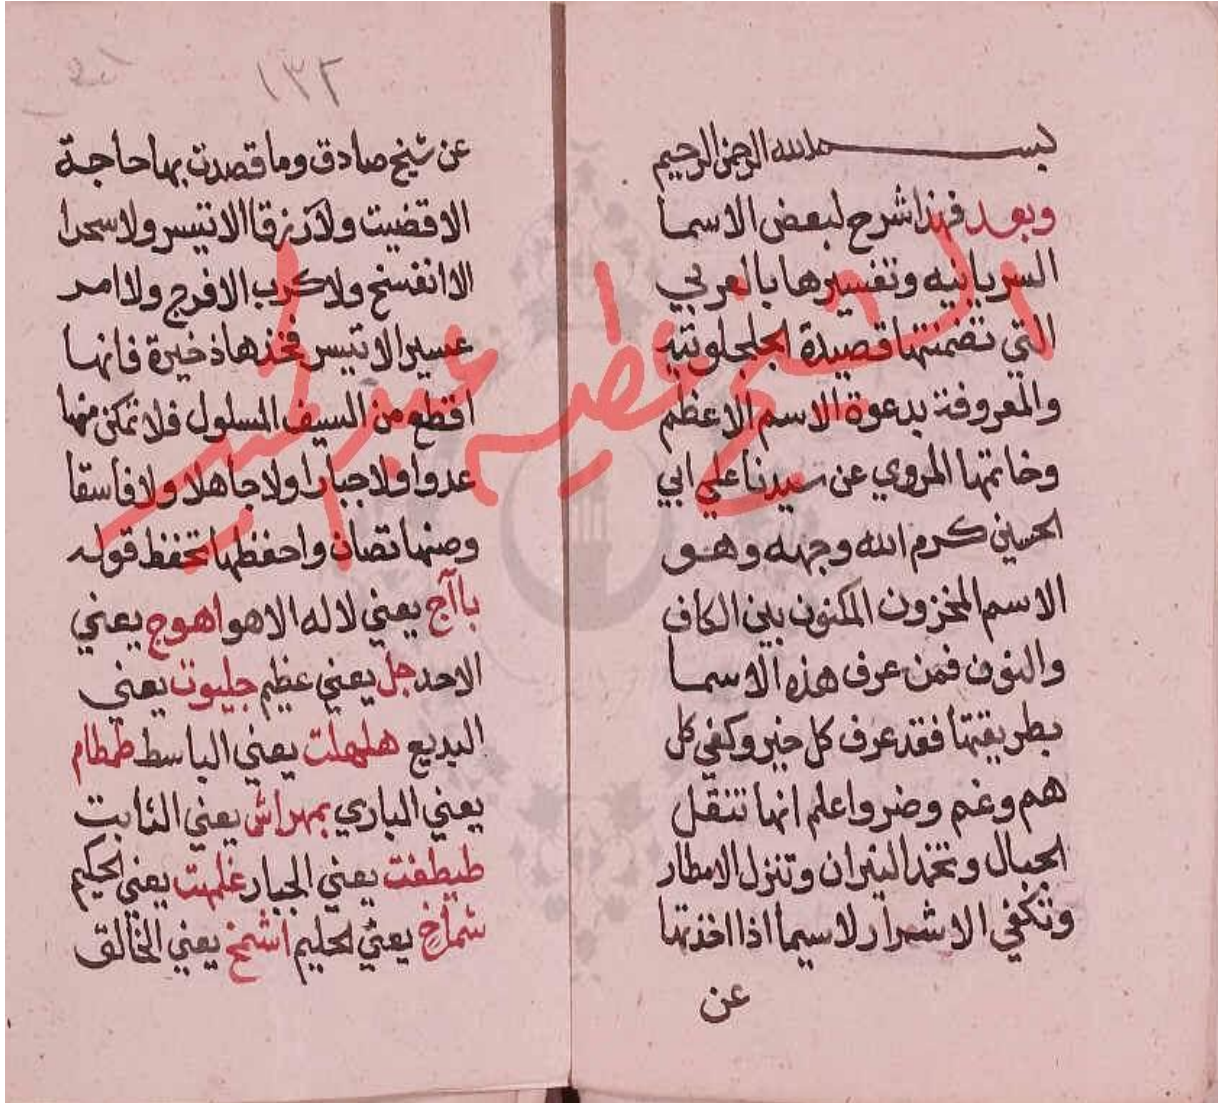 بسم الله الرحمن الرحيم
وبعد فهذا شرح لبعض الاسما
السريانيه وتفسيرها بالعربي
التي تضمنتها قصيدة الجلجلوتيه
والمعروفة بدعوة الاسم الاعظم
وخاتمتها المروي عن سيدنا علي ابي
الحسين كرم الله وجهه وهو
الاسم المخزون المكنون بين الكاف
والنون فمن عرف هذه الاسما
بطريقتها فقد عرف كل خير وكفي كل
هم وغم وضر واعلم انها تنقل
الجبال وتخمد النيران وتنزل الامطار
وتكفي الاشرار لاسيما اذا اخذتها
عن
١٣٢
عن شيخ صادق وما قصدت بها حاجة
الا قضيت ولا رزقا الا تيسر ولا سحرا
الا انفسخ ولا كرب الا فرج ولا امر
عسير الا تيسر فخذها ذخيرة فانها
اقطع من السيف المسلول فلا تمكن منها
عدوا ولا جبارا ولا جاهلا ولا فاسقا
وصنها تصان واحفظها تحفظ قوله
بااآج يعني لا له الا هو اهوج يعني
الاحد جل يعني عظيم جليوت يعني
البديع هلهلت يعني الباسط طمطام
يعني الباري بمهراش يعني الثابت
طيطفت يعني الجبار غلمهت يعني الحكيم
شماخ يعني الحليم اشمخ يعني الخالق
الشيخ عبد